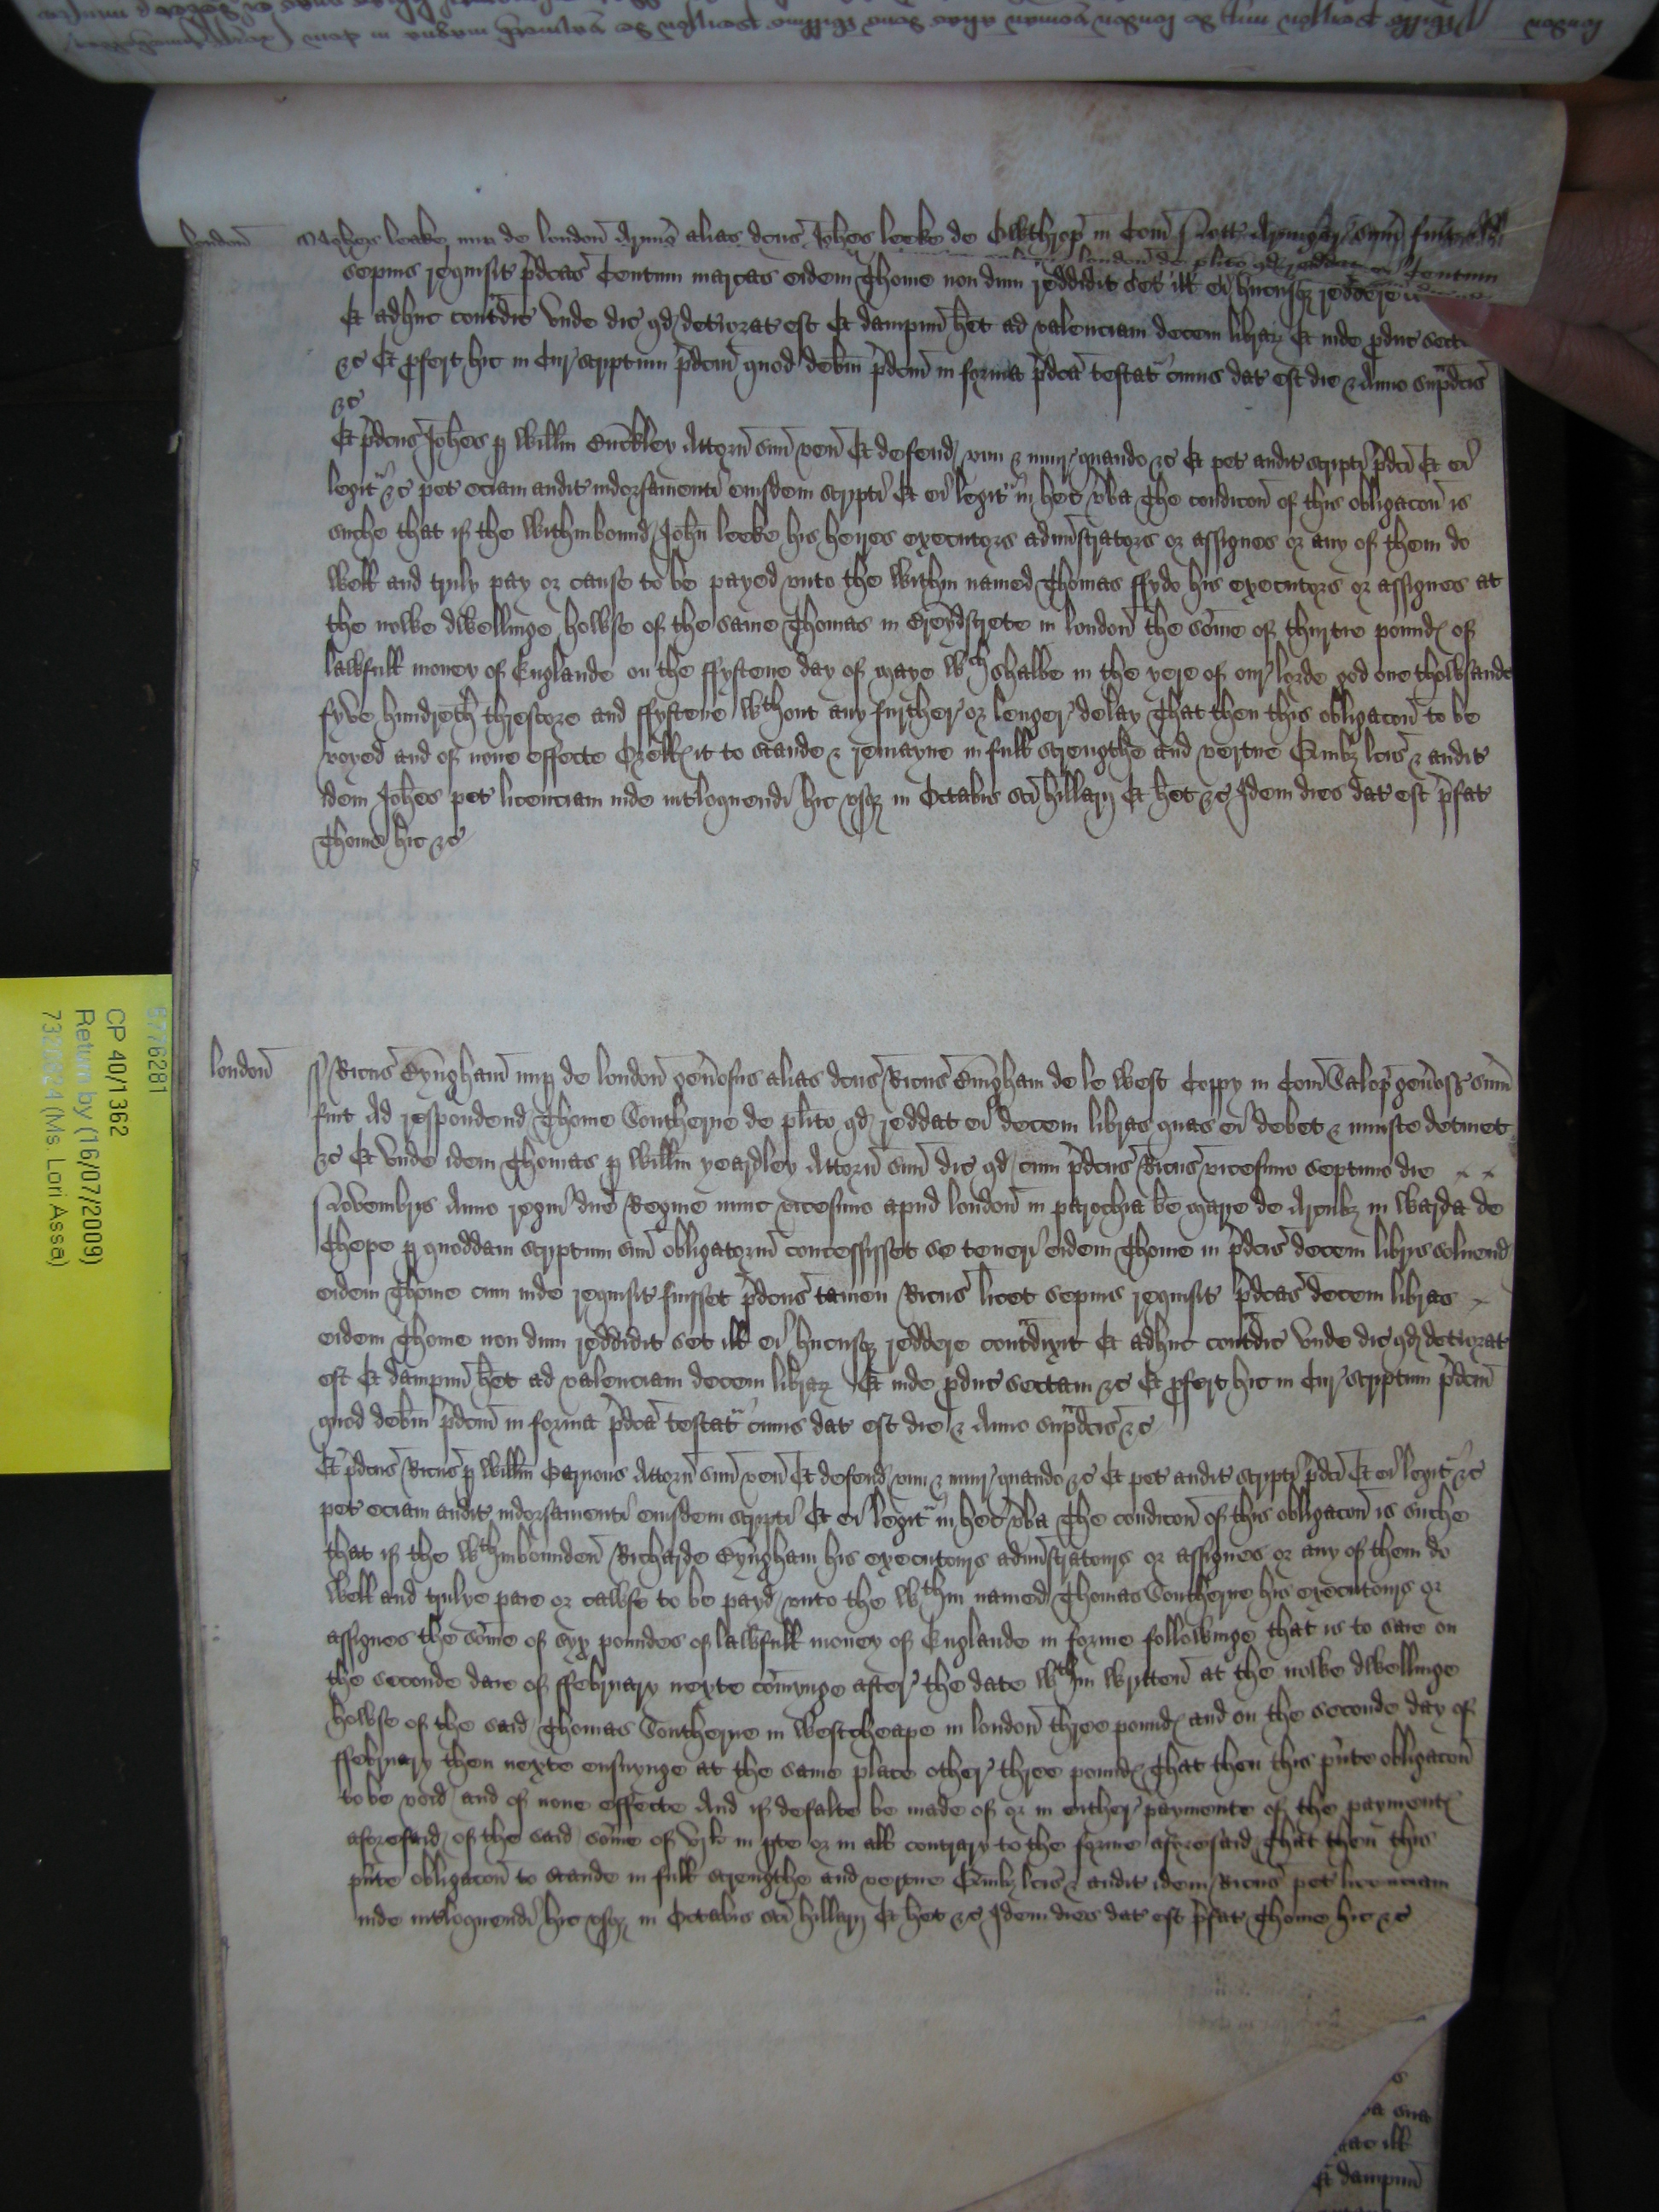 london Johes leeke nup de london Armig alias dcus Johes leeke de Owthrop in Com Nott Armigeri sum fuit
london de plito qd reddat ei Centum
sepius requisit pdcas Centum marcas eidem Thome non dum reddidit set ill ei hucusq reddere
Et adhuc contdic Unde dic qd deteriorat est Et dampnum het ad valenciam decem librar Et inde produc sect
&c Et profert hic in Cur scriptum pdcm quod debm pdcm in forma pdca testat cuius dat est die & Anno supdcis
&c
Et pdcus Johes p Willm Attorn suum ven Et defend vim & iniur quando &c Et pet audit scripti pdci Et ei
legit &c pet eciam audit indorsamenti eiusdem scripti Et ei legit in hec vba The condicon of this obligacon is
suche that if the withinbound John leeke his heyres executors administrators or assignes or any of them do
well and truly pay or cause to be payed unto the within named Thomas ffyde his executors or assignes at
the nowe dwellinge howse of the same Thomas in Bredstrete in london the some of thirtie pound of
lawfull money of Englande on the ffyftene day of Maye wch shalbe in the yere of our lorde god one thowsande
fyve hundreth threscore and ffyftene wthout any further or lenger delay That then this obligacon to be
voyed and of none effecte Orells it to stande & remayne in full strengthe and vertue Quibz lcis & audit
idem Johes pet licenciam inde intloquendi hic usq in Octabis sci hillarij Et het &c Idem dies dat est pfat
Thome hic &c
london Ricus Eyngham nup de london generosus alias dcus Ricus Eingham de le West Coppy in Com Salop generos sum
fuit Ad respondend Thome Southerne de plito qd reddat ei decem libras quas ei debet & iniuste detinet
&c Et Unde idem Thomas p Willm yeardley Attorn suum dic qd cum pdcus Ricus vicesimo septimo die
Novembris Anno regni dne Regine nunc vicesimo apud london in parochia be Marie de Arcubz in Warda de
Chepe p quoddam scriptum suum obligatorium concessisset se teneri eidem Thome in pdcis decem libris solvend
eidem Thome cum inde requisit fuisset pdcus tamen Ricus licet sepius requisit pdcas decem libras
eidem Thome non dum reddidit set ill ei hucusq reddere contdixit Et adhuc contdic Unde dic qd deteriorat
est Et dampnum het ad valenciam decem librar Et inde produc sectam &c Et profert hic in Cur scriptum pdcm
quod debm pdcm in forma pdca testat cuius dat est die & Anno supdcis &c
Et pdcus Ricus p Willm Barnous Attorn suum ven Et defend vim & iniur quando &c Et pet audit scripti pdci Et ei legit &c
pet eciam audit indorsamenti eiusdem scripti Et ei legit in hec vba The condicon of this obligacon is suche
that if the wthinbounden Richarde Eyngham his executours administratours or assignes or any of them do
well and trulye paie or cawse to be payd unto the wthin named Thomas Southerne his executours or
assignes the some of syx poundes of lawfull money of Englande in forme followinge that is to saie on
the seconde daie of ffebruary nexte comynge after the date wthin written at the nowe dwellinge
howse of the said Thomas Southerne in Westcheape in london three pound and on the seconde day of
ffebruary then nexte ensuynge at the same place other three pound That then this psente obligacon
to be void and of none effecte And if defalte be made of or in either paymente of the payment
aforesaid of the said some of vjli in pte or in all contrary to the forme aforesaid That then this
psente obligacon to stande in full strengthe and vertue Quibz lcis & audit idem Ricus pet licenciam
inde intloquendi hic usq in Octabis sci hillarij Et het &c Idem dies dat est pfat Thome hic &c
5776281
CP 40/1362
Return by (16/07/2009)
7320824 (Ms. Lori Assa)